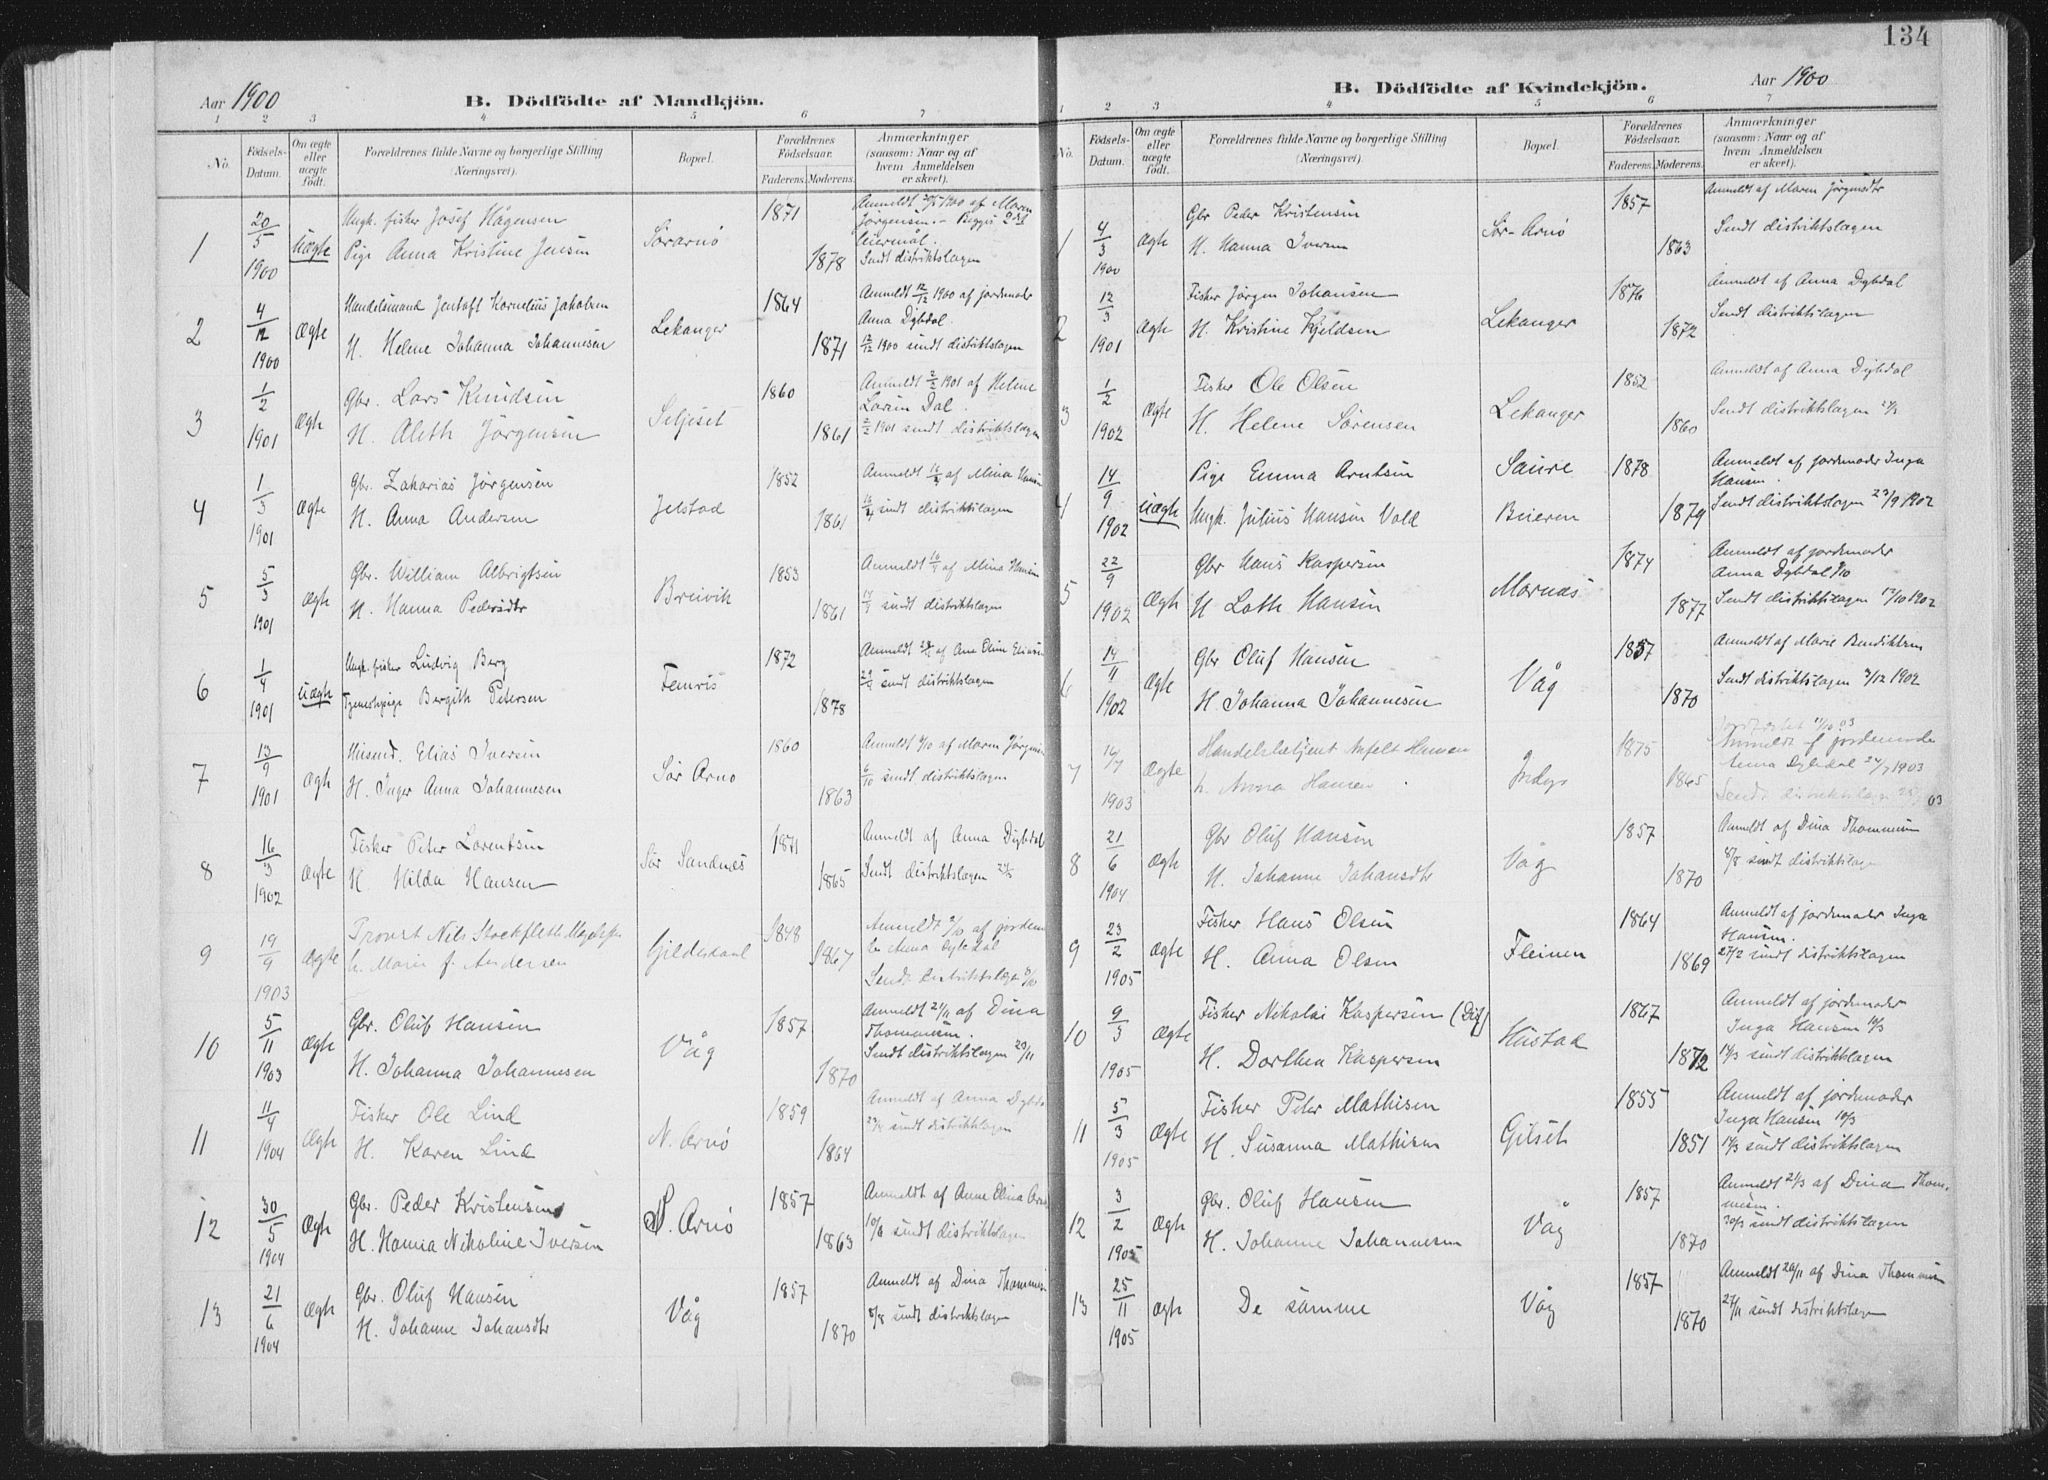 134
Aar 1900
B. Dödfödte af Mandkjön.
1 2 3 4 5 6 7
No.
Födsels-Datum.
Om ægte eller uægte födt.
Forældrenes fulde Navne og borgerlige Stilling (Næringsvei).
Bopæl.
Forældrenes Födselsaar.
Faderens. Moderens.
Anmærkninger (saasom: Naar og af hvem Anmeldelsen er skeet).
1 20/5 1900 uægte
Ungk. fisker Josef Hågensen
Pige Anna Kristine Jensen
Sørarnø 1871 1878
Anmeldt 20/5 1900 af Maren
Jørgensen. - Begges 2det
leiermål.
Sendt distriktslægen
2 4/12 1900 ægte
Handelsmand Jentoft Kornelius Jakobsen
H. Helene Johanna Johannesen
Lekanger 1864 1871
Anmeldt 12/12 1900 af jordmoder
Anna Dybdal
12/12 1900 sendt distriktslægen
3 1/2 1901 ægte
Gbr. Lars Knudsen
H. Aleth Jørgensen
Seljeset 1860 1861
Anmeldt 2/2 1901 af Helene
Larsen Dal.
2/2 1901 sendt distriktslægen
4 1/3 1901 ægte
Gbr. Zakarias Jørgensen
H. Anna Andersen
Jelstad 1852 1861
Anmeldt af Mina Hansen
sendt distriktslægen
5 5/3 1901 ægte
Gbr. William Albrigtsen
H. Hanna Pedersdtr
Breivik 1853 1861
Anmeldt af Mina Hansen
sendt distriktslægen
6 1/4 1901 uægte
Ungk. fisker Ludvig Berg
Tjenestepige Bergith Petersen
Femris 1872 1878
Anmeldt af Ane Oline Eliasen
sendt distriktslægen
7 13/9 1901 ægte
Husmd. Elias Iversen
H. Inger Anna Johannesen
Sør Arnø 1860 1863
Anmeldt 6/10 af Maren Jørgensen
6/10 sendt distriktslægen
8 16/3 1902 ægte
Fisker Peter Lorentsen
H. Hilda Hansen
Sør Sandnes 1871 1865
Anmeldt af Anna Dybdal
Sendt distriktslægen
9 19/9 1903 ægte
Provst Nils Stockfleth Magelssen
h. Marie f. Andersen
Gildeskaal 1848 1867
Anmeldt af jordem
Anna Dybdal
Sendt distriktslæg
10 5/11 1903 ægte
Gbr. Oluf Hansen
H. Johanna Johannesen
Våg 1857 1870
Anmeldt 21/11 af Dina
Thommesen.
Sendt distriktslægen 29/11
11 11/4 1904 ægte
Fisker Ole Lind
H. Karen Lind
N. Arnø 1859 1864
Anmeldt af Anna Dybdal
sendt distriktslægen
12 30/5 1904 ægte
Gbr. Peder Kristensen
H. Hanna Nikoline Iversen
S. Arnø 1857 1863
Anmeldt af Anne Elina
sendt distriktslægen
13 21/6 1904 ægte
Gbr. Oluf Hansen
H. Johanne Johansdtr
Våg 1857 1870
Anmeldt af Dina Thommesen
8/8 sendt distriktslægen
B. Dödfödte af Kvindekjön.
Aar 1900
1 2 3 4 5 6 7
No.
Födsels-Datum.
Om ægte eller uægte födt.
Forældrenes fulde Navne og borgerlige Stilling (Næringsvei).
Bopæl.
Forældrenes Födselsaar.
Faderens. Moderens.
Anmærkninger (saasom: Naar og af hvem Anmeldelsen er skeet).
1 4/3 1900 ægte
Gbr Peder Kristensen
H. Hanna Iversen
Sør-Arnø 1857 1863
Anmeldt af Maren Jørgensdtr
Sendt distriktslægen
2 12/3 1901 ægte
Fisker Jørgen Johansen
H. Kristine Kjeldsen
Lekanger 1876 1872
Anmeldt af Anna Dybdal
Sendt distriktslægen
3 1/2 1902 ægte
Fisker Ole Olsen
H. Helene Sørensen
Lekanger 1852 1860
Anmeldt af Anna Dybdal
Sendt distriktslægen
4 14/9 1902 uægte
Pige Emma Arntsen
Ungk. Julius Hansen Vold
Saure
Beieren 1878 1879
Anmeldt af jordemoder Inga
Hansen.
Sendt distriktslægen 23/9 1902
5 22/9 1902 ægte
Gbr Hans Kaspersen
H Loth Hansen
Mornæs 1874 1877
Anmeldt af jordemoder
Anna Dybdal
Sendt distriktslægen 1902
6 14/11 1902 ægte
Gbr Oluf Hansen
H. Johanna Johannesen
Våg 1857 1870
Anmeldt af Marie Bendiktsen
Sendt distriktslægen 1902
7 16/7 1903 ægte
Handelsbetjent Anfelt Hansen
h. Anna Hansen
Indyr 1875 1865
Jordfæstet 03
Anmeldt af jordemoder
Anna Dybdal 24/7 1903
Sendt distriktslægen 03
8 21/6 1904 ægte
Gbr Oluf Hansen
H. Johanne Johansdtr
Våg 1857 1870
Anmeldt af Dina Thommesen
8/8 sendt distriktslægen
9 23/2 1905 ægte
Fisker Hans Olsen
H. Anna Olsen
Fleinen 1864 1869
Anmeldt af jordemoder Inga
Hansen.
27/2 sendt distriktslægen
10 9/3 1905 ægte
Fisker Nikolai Kaspersen (Dis)
H. Dorthea Kaspersen
Hustad 1867 1872
Anmeldt af jordemoder
Inga Hansen
14/3 sendt distriktslægen
11 5/3 1905 ægte
Fisker Peter Mathisen
H. Susanna Mathisen
Gilset 1855 1851
Anmeldt af jordemoder
Inga Hansen 10/3
14/3 sendt distriktslægen
12 3/2 1905 ægte
Gbr. Oluf Hansen
H. Johanne Johannesen
Våg 1857 1870
Anmeldt 21/3 af Dina Thom-
mesen.
30/3 sendt distriktslægen
13 25/11 1905 ægte
De samme
Våg 1857 1870
Anmeldt 26/11 af Dina Thommesen
27/11 sendt distriktslægen